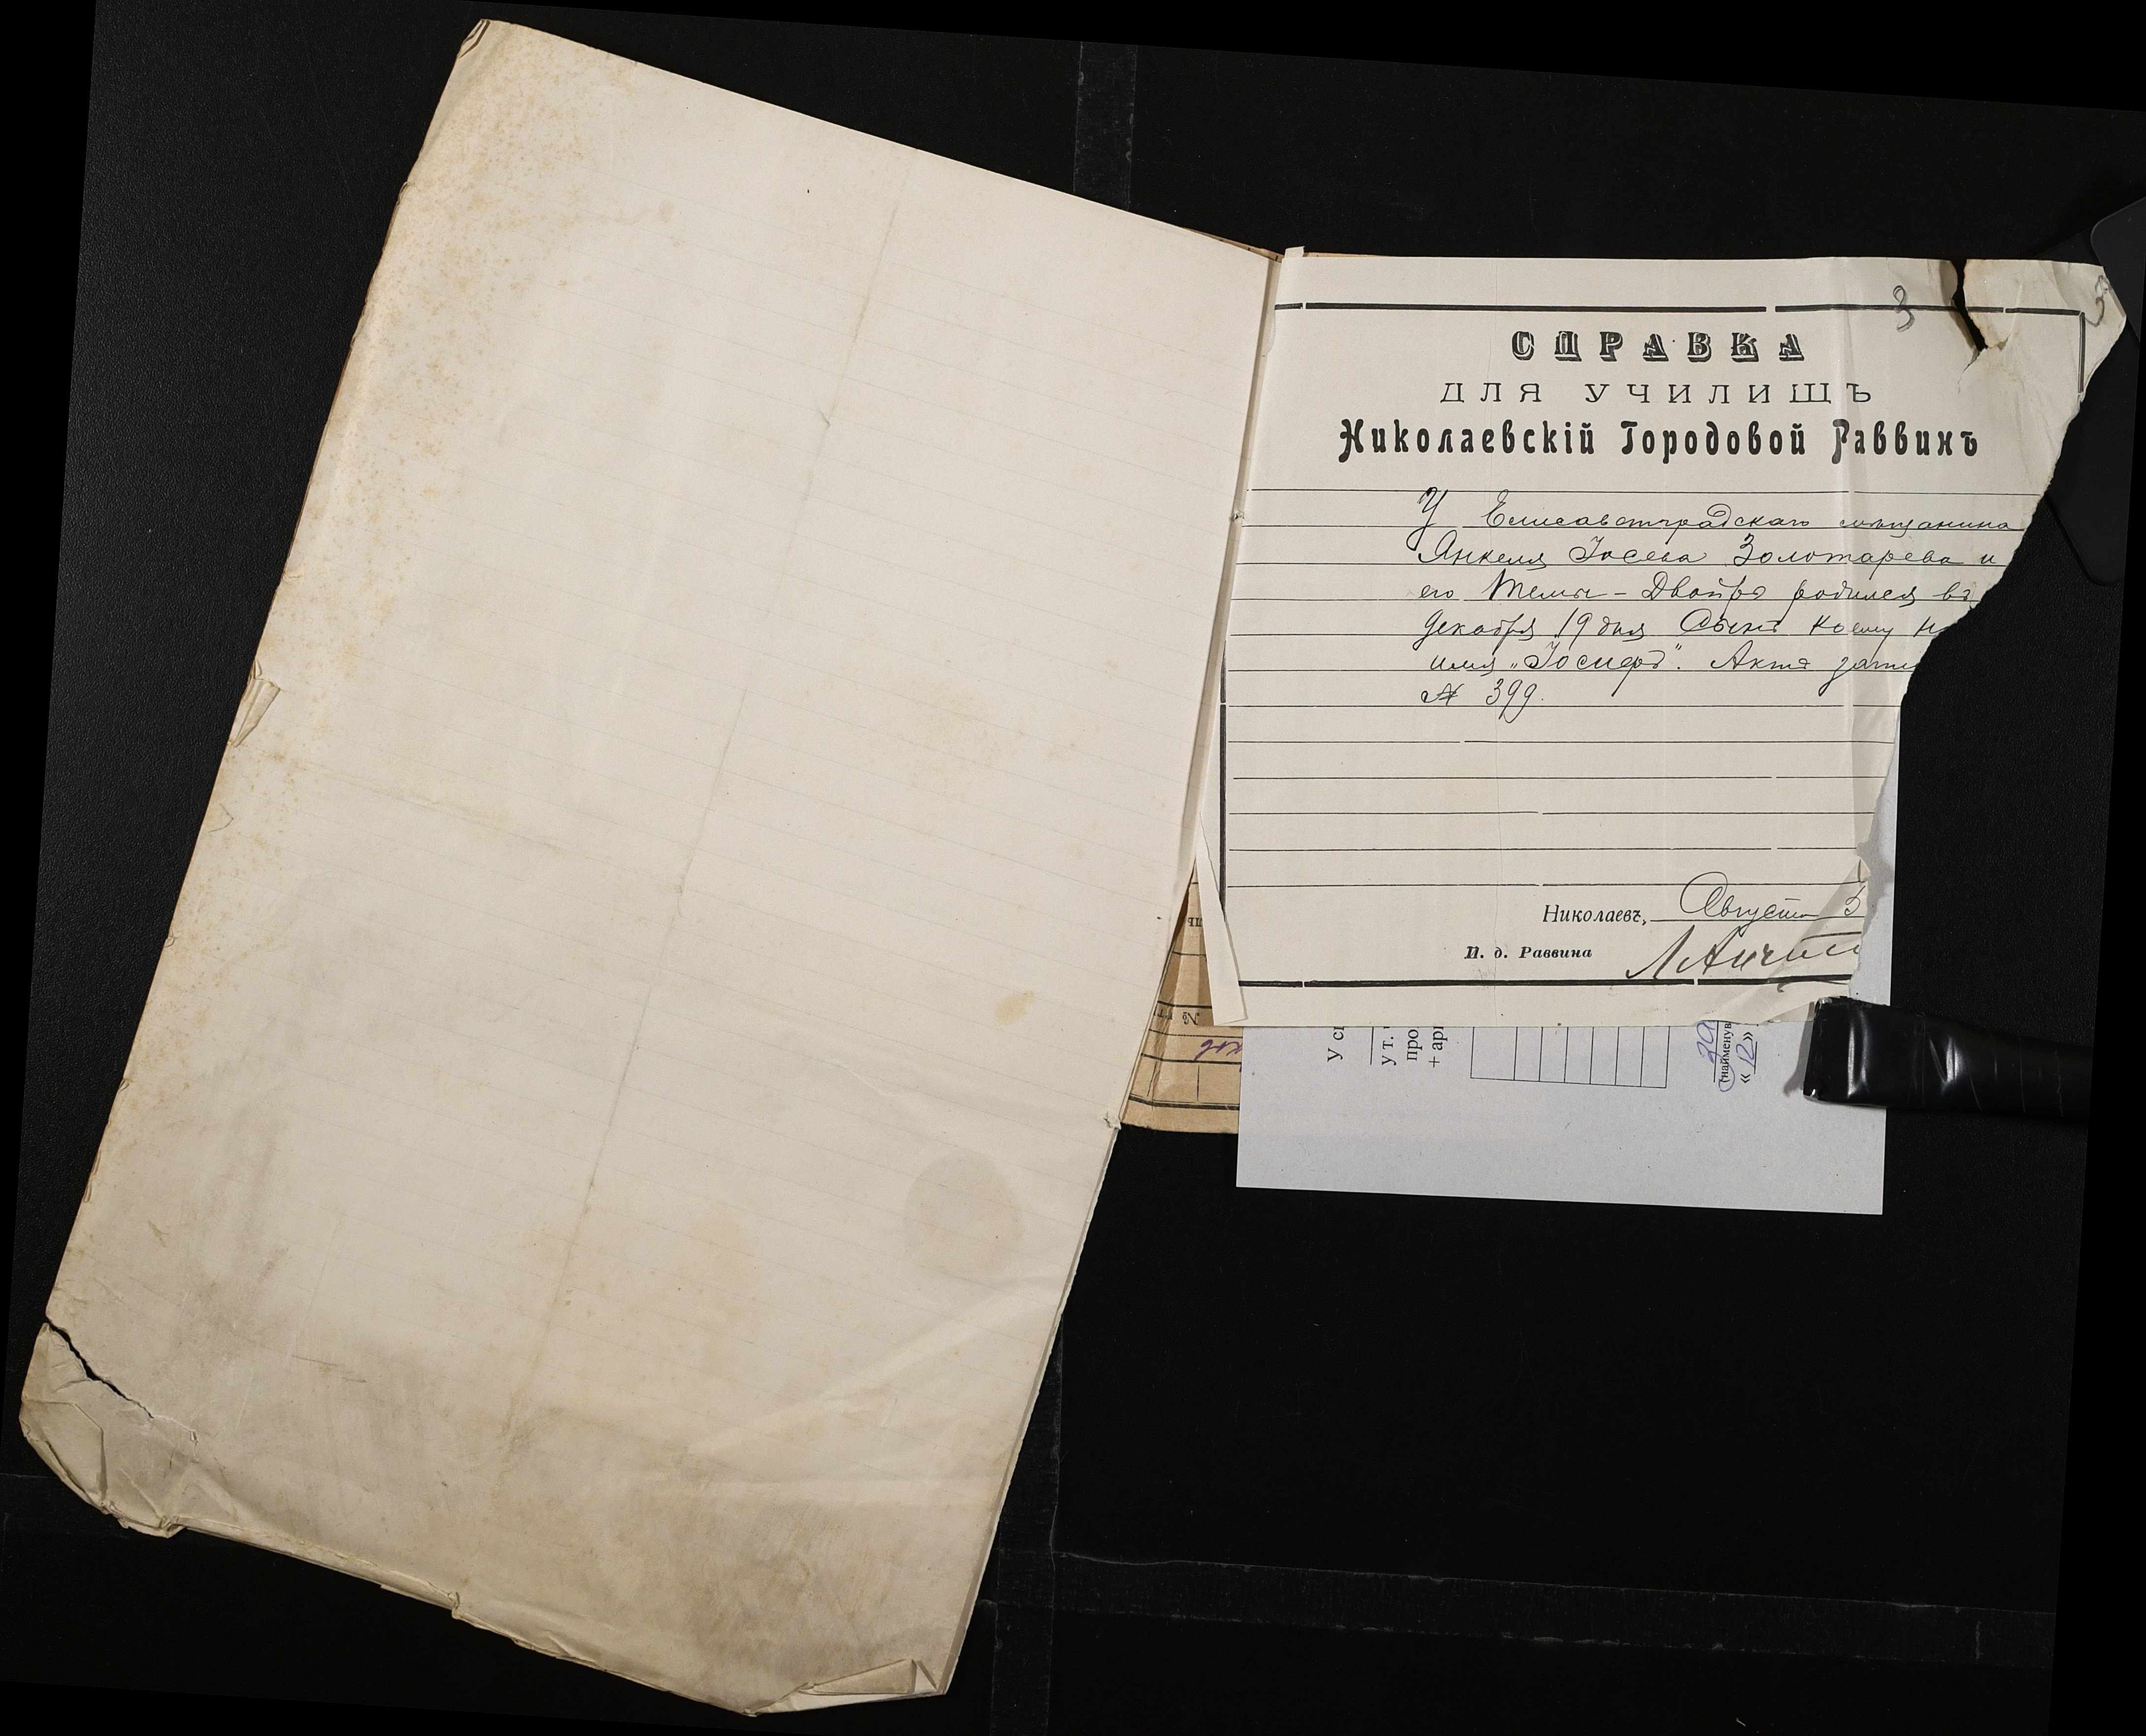 3
СПРАВКА
ДЛЯ УЧИЛИЩЪ
Николаевскій Городовой Раввинъ
У Елисаветградскаго мѣщанина
Янкеля Іосева Золотарева и
его Темы-Двойры родился въ
декабря 19 дня Сынъ коему н
имя „Іосифъ". Актъ запи
№ 399.
Николаевъ, Августа 3
И. д. Раввина
У сі
у т.
про
+ арк
(найменув
«12»
№